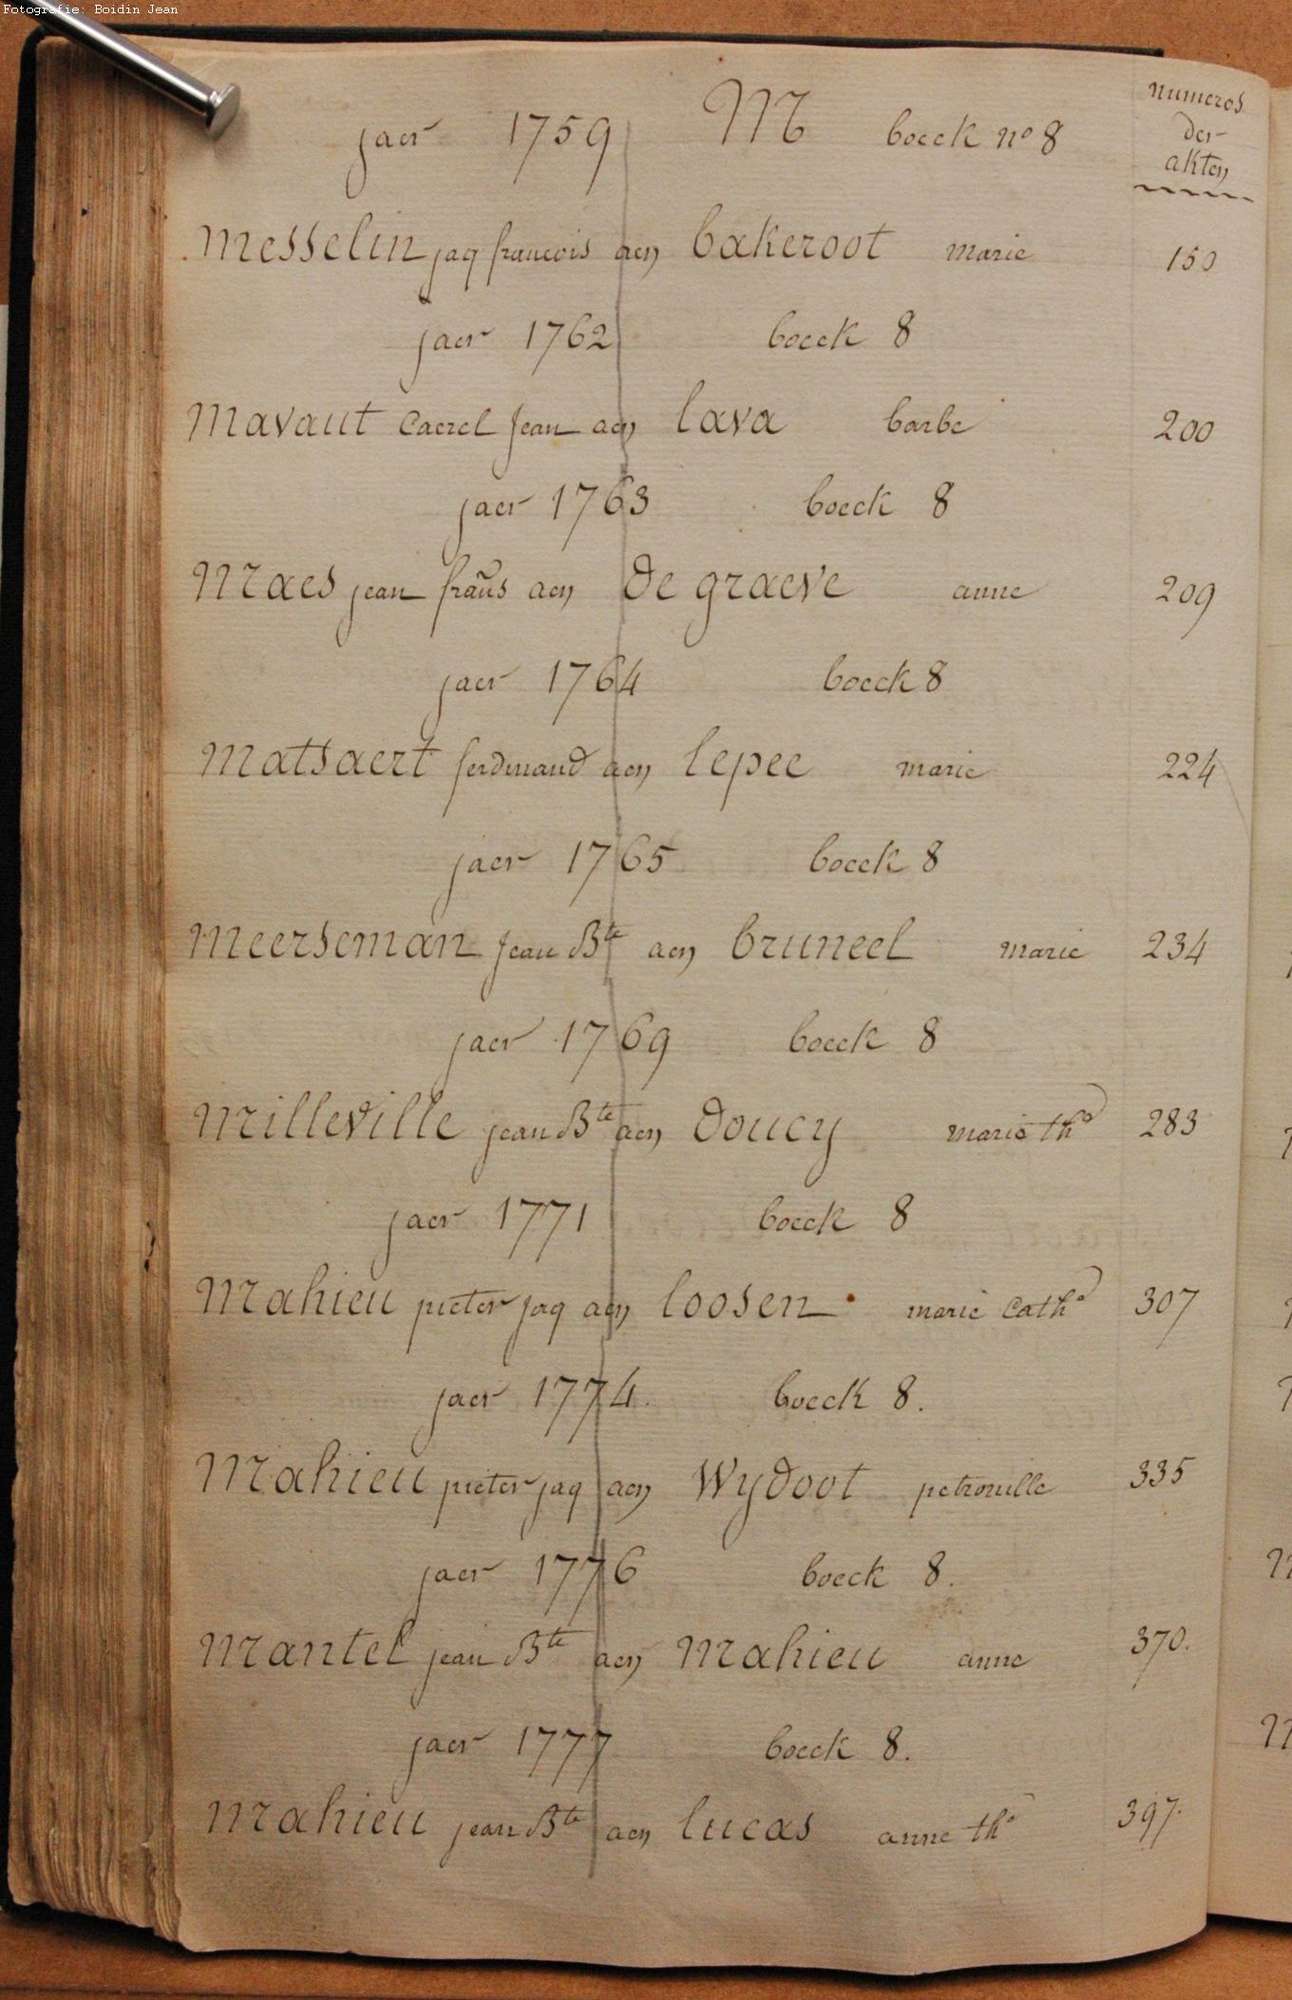 Fotografie: Boidin Jean
jaer 1759 M boeck no 8
numeros
der
akten
Messelin jaq francois aen bakeroot marie 150
jaer 1762 boeck 8
Mavaut Caerel Jean aen lava barbe 200
jaer 1763 boeck 8
Maes jean frans aen de graeve anne 209
jaer 1764 boeck 8
Matsaert ferdinand aen lepee marie 224
jaer 1765 boeck 8
Meerseman Jean Bte aen bruneel marie 234
jaer 1769 boeck 8
Milleville jean Bte aen doucy marie tha 283
jaer 1771 boeck 8
Mahieu pieter jaq aen loosen marie Catha 307
jaer 1774. boeck 8.
Mahieu pieter jaq aen Wydoot petronille 335
jaer 1776 boeck 8.
Mantel jean Bte aen Mahieu anne 370.
jaer 1777 boeck 8.
Mahieu jean Bte aen lucas anne tha 397.